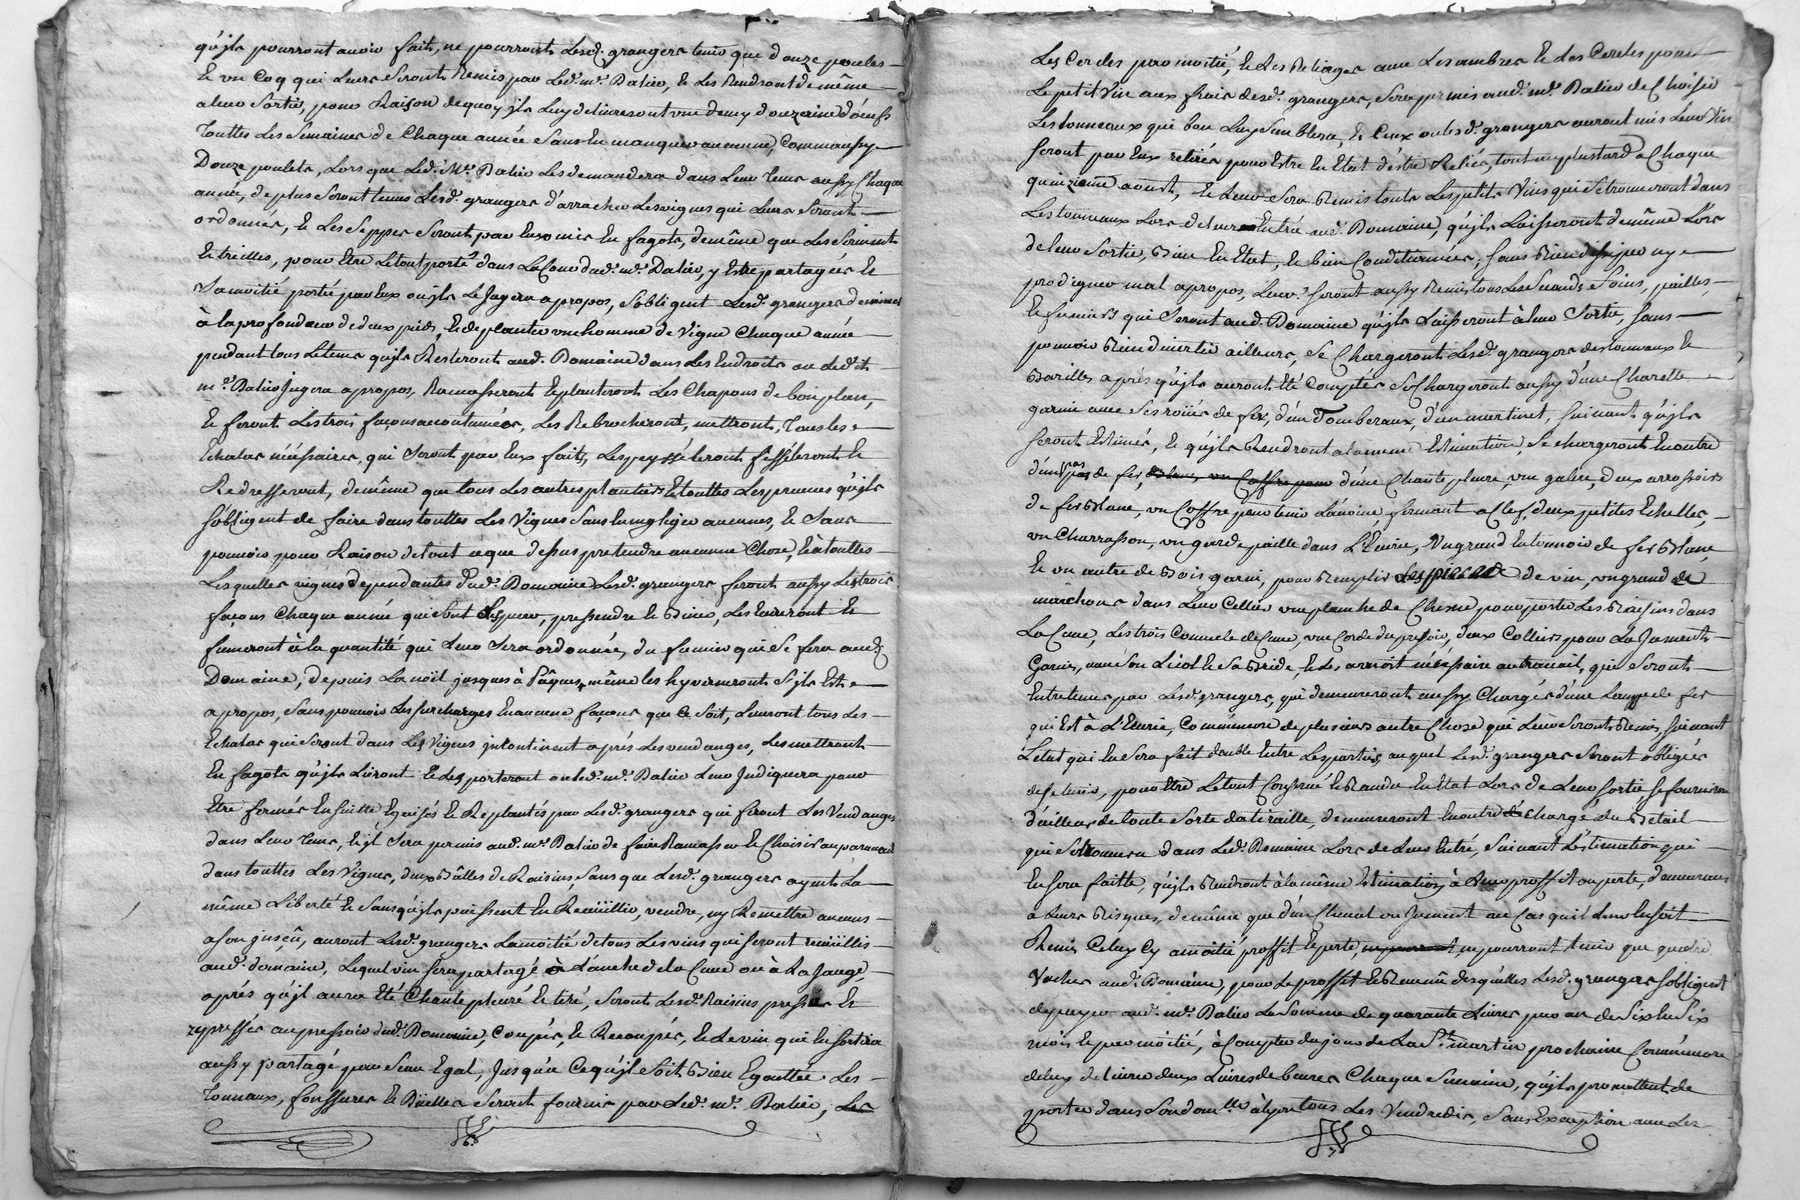 qu'jls pourront avoir fait, ne pourront Lesd. grangers tenir que douze poules
Et un Coq qui Leurs Seront Remis par Led. mr. Balier, Et Les Rendront de même
a leur Sortie, pour Raison de quoy jls Luy delivreront une demy douzaine d'oeufs
Touttes Les Semaines de Chaque année Sans En manquer aucunne, Comm'aussy
Douze poulets, Lors que Led. Mr. Balier Les demandera dans Leur tems aussy Chaque
année, de plus Seront tenus Lesd. grangers d'arracher Les vignes qui Leurs Seront
ordonnées, Et Les Seppes Seront par Eux mis En fagots, de même que Les Serments
Et treilles, pour Etre Le tout porté dans La Cour dud. mr. Balier, y Etre partagées Et
Sa moitié porté par Eux où jls Le Jugera a propos, S'obligent Lesd. grangers de miner
à la profondeur de deux pieds, Et de planter un homme de vigne Chaque année
pendant tous Le tems qu'jls Resteront aud. Domaine dans Les Endroits ou Ledit
mr. Balier Jugera a propos, Ramasseront Et planteront Les Chapons de bon plan,
Et feront Les trois façons acoutumées, Les Rebrocheront, mettront, Tous Les
Echalas néssésaires, qui Seront par Eux faits, Les
Redresseront, de même que tous Les autres plantiers Et touttes Les preuves qu'jls
S'obligent de faire dans touttes Les Vignes Sans En negliger aucunnes, Et Sans
pouvoir pour Raison de tout ce que dessus pretendre aucunne Chose, Et à touttes
Lesquelles vignes dependantes dud. Domaine Lesd. grangers feront aussy Les trois
façons Chaque année qui Sont Et Biner, Les Et
fumeront à la quantité qui Leur Sera ordonnée, du fumier qui Se fera aud.
Domaine, depuis La noël jusques à Pâques, même Les hyverneront S'jls Est
a propos, Sans pouvoir Les Surcharges En aucune façons que Ce Soit, Leveront tous Les
Echalas qui Seront dans Les Vignes jncontinent après Les vendanges, Les mettront
En fagots qu'jls Lieront Et Les porteront ou Led. mr. Balier Leur Jndiquera pour
Etre fermés Ensuitte Eguisés Et Replantés par Lesd. grangers qui feront Les Vendanges
dans Leur tems, Et jl Sera permis aud. mr. Balier de faire Ramasser Et Choisir auparavant
dans touttes Les Vignes, deux Bâlles de Raisins, Sans que Lesd. grangers ayent La
même Liberté Et Sans qu'jls puissent En Recuillir, vendre, ny Remettre aucuns
a Son jnsçû, auront Lesd. grangers La moitié de tous Les vins qui Seront recuillis
aud. domaine, Lequel vin Sera partagé à L'anche de la Cuve ou à La Jauge
après qu'jl aura Eté Chantepleuré Et tiré, Seront Lesd. Raisins pressés Et
repressés au pressoir dud. Domaine, Coupés, Et Recoupés, Et Le vin qui En Sortira
aussy partagé par Seau Egal, Jusqu'à Ce qu'jl Soit Bien Egouttée. Les
Tonnaux, fonssures Et Seront fournis par Led. mr. Balier, Les
Les Cercles par moitié, Et Les Reliages avec Les ambres Et Les Cercles pour
Le petit Vin aux frais desd. grangers, Sera permis aud. mr. Balier de Choisir
Les tonneaux qui bon Luy Semblera, Et Ceux ou lesd. grangers auront mis Leur Vin
Seront par Eux retirés pour Etre En Etat d'être Reliés, tout au plustard a Chaque
quinzieme aoust, Et Leur Sera Remis touts Les petits Vins qui Se trouveront dans
Les tonneaux Lors de Leur Entrée aud. Domaine, qu'jls Laisseront de même Lors
de Leur Sortie, Bien En Etat, Et bien Conditionnés, Sans Rien ny
prodiguer mal a propos, Leurs Seront aussy Remis tous Les foins, pailles,
Et fumiers qui Seront aud. Domaine qu'jls Laisseront à Leur Sortie, Sans
pouvoir Rien divertir ailleurs, Se Chargeront Lesd. grangers des tonneaux Et
Barilles après qu'jls auront Eté Comptés Se Chargeront aussy d'une Charette
garnie avec Ses roües de fer, d'un Tomberaux, d'un martinet, Suivant qu'jls
Seront Estimés, Et qu'jls Rendront a la meme Estimation, Se chargeront En outre
d'un pas de fer, d'une Chantepleure, une galère, deux arrosoirs
de fer Blanc, un Coffre pour tenir L'avoine, fermant a Clef, deux petites Echelles,
un Charrasson, un garde paille dans L'Ecurie, Un grand Entonnoir de fer Blanc
Et un autre de Bois garni, pour Remplir Les pieces de vin, un grand
marchons dans Leur Cellier une planche de Chesne pour porter Les Raisins dans
La Cuve, Les trois de Cuve, une Corde du pressoir, deux Colliers pour La Jument
Garnis, avec Son Licol Et Sa Bride, Et Les arnoit néssésaire au travail, qui Seront
Entretenus par Lesd. grangers, qui demeureront aussy Chargés d'une Lampe de fer
qui Est à L'Ecurie, Comm'encore de plusieurs autre Chose qui Leur Seront Remis, Suivant
L'etat qui En Sera fait double Entre Les parties auquel Lesd. grangers Seront obligés
de Se tenir, pour Etre Le tout Conservé Et Rendu En Etat Lors de Leur Sortie Se fourniront
d'ailleurs de toute Sorte d'atiraille, demeureront En outre Chargé du Bétail
qui Se trouvera dans Led. Domaine Lors de Leur Entré, Suivant L'estimation qui
En Sera faitte, qu'jls Rendront à la même Estimation, à Leur proffit ou perte, demeurans
à Leurs Risques, de même que d'un Cheval ou Jument au Cas qu'il Leur En Soit
Remis Celuy Cy a moitié proffit Et perte, ne pourront tenir que quatre
Vaches aud. Domaine, pour Le proffit Et Revenû desquelles Lesd. grangers S'obligent
de payer aud. mr. Balier La Somme de quarante Livres par an de Six En Six
mois Et par moitié, à Compter du jour de La St. martin prochaine Comm'encore
de Luy delivrer deux Livres de beurre Chaque Semaine, qu'jls promettent de
porter dans Son dom.lle à tous Les Vendredis, Sans Exception avec Les